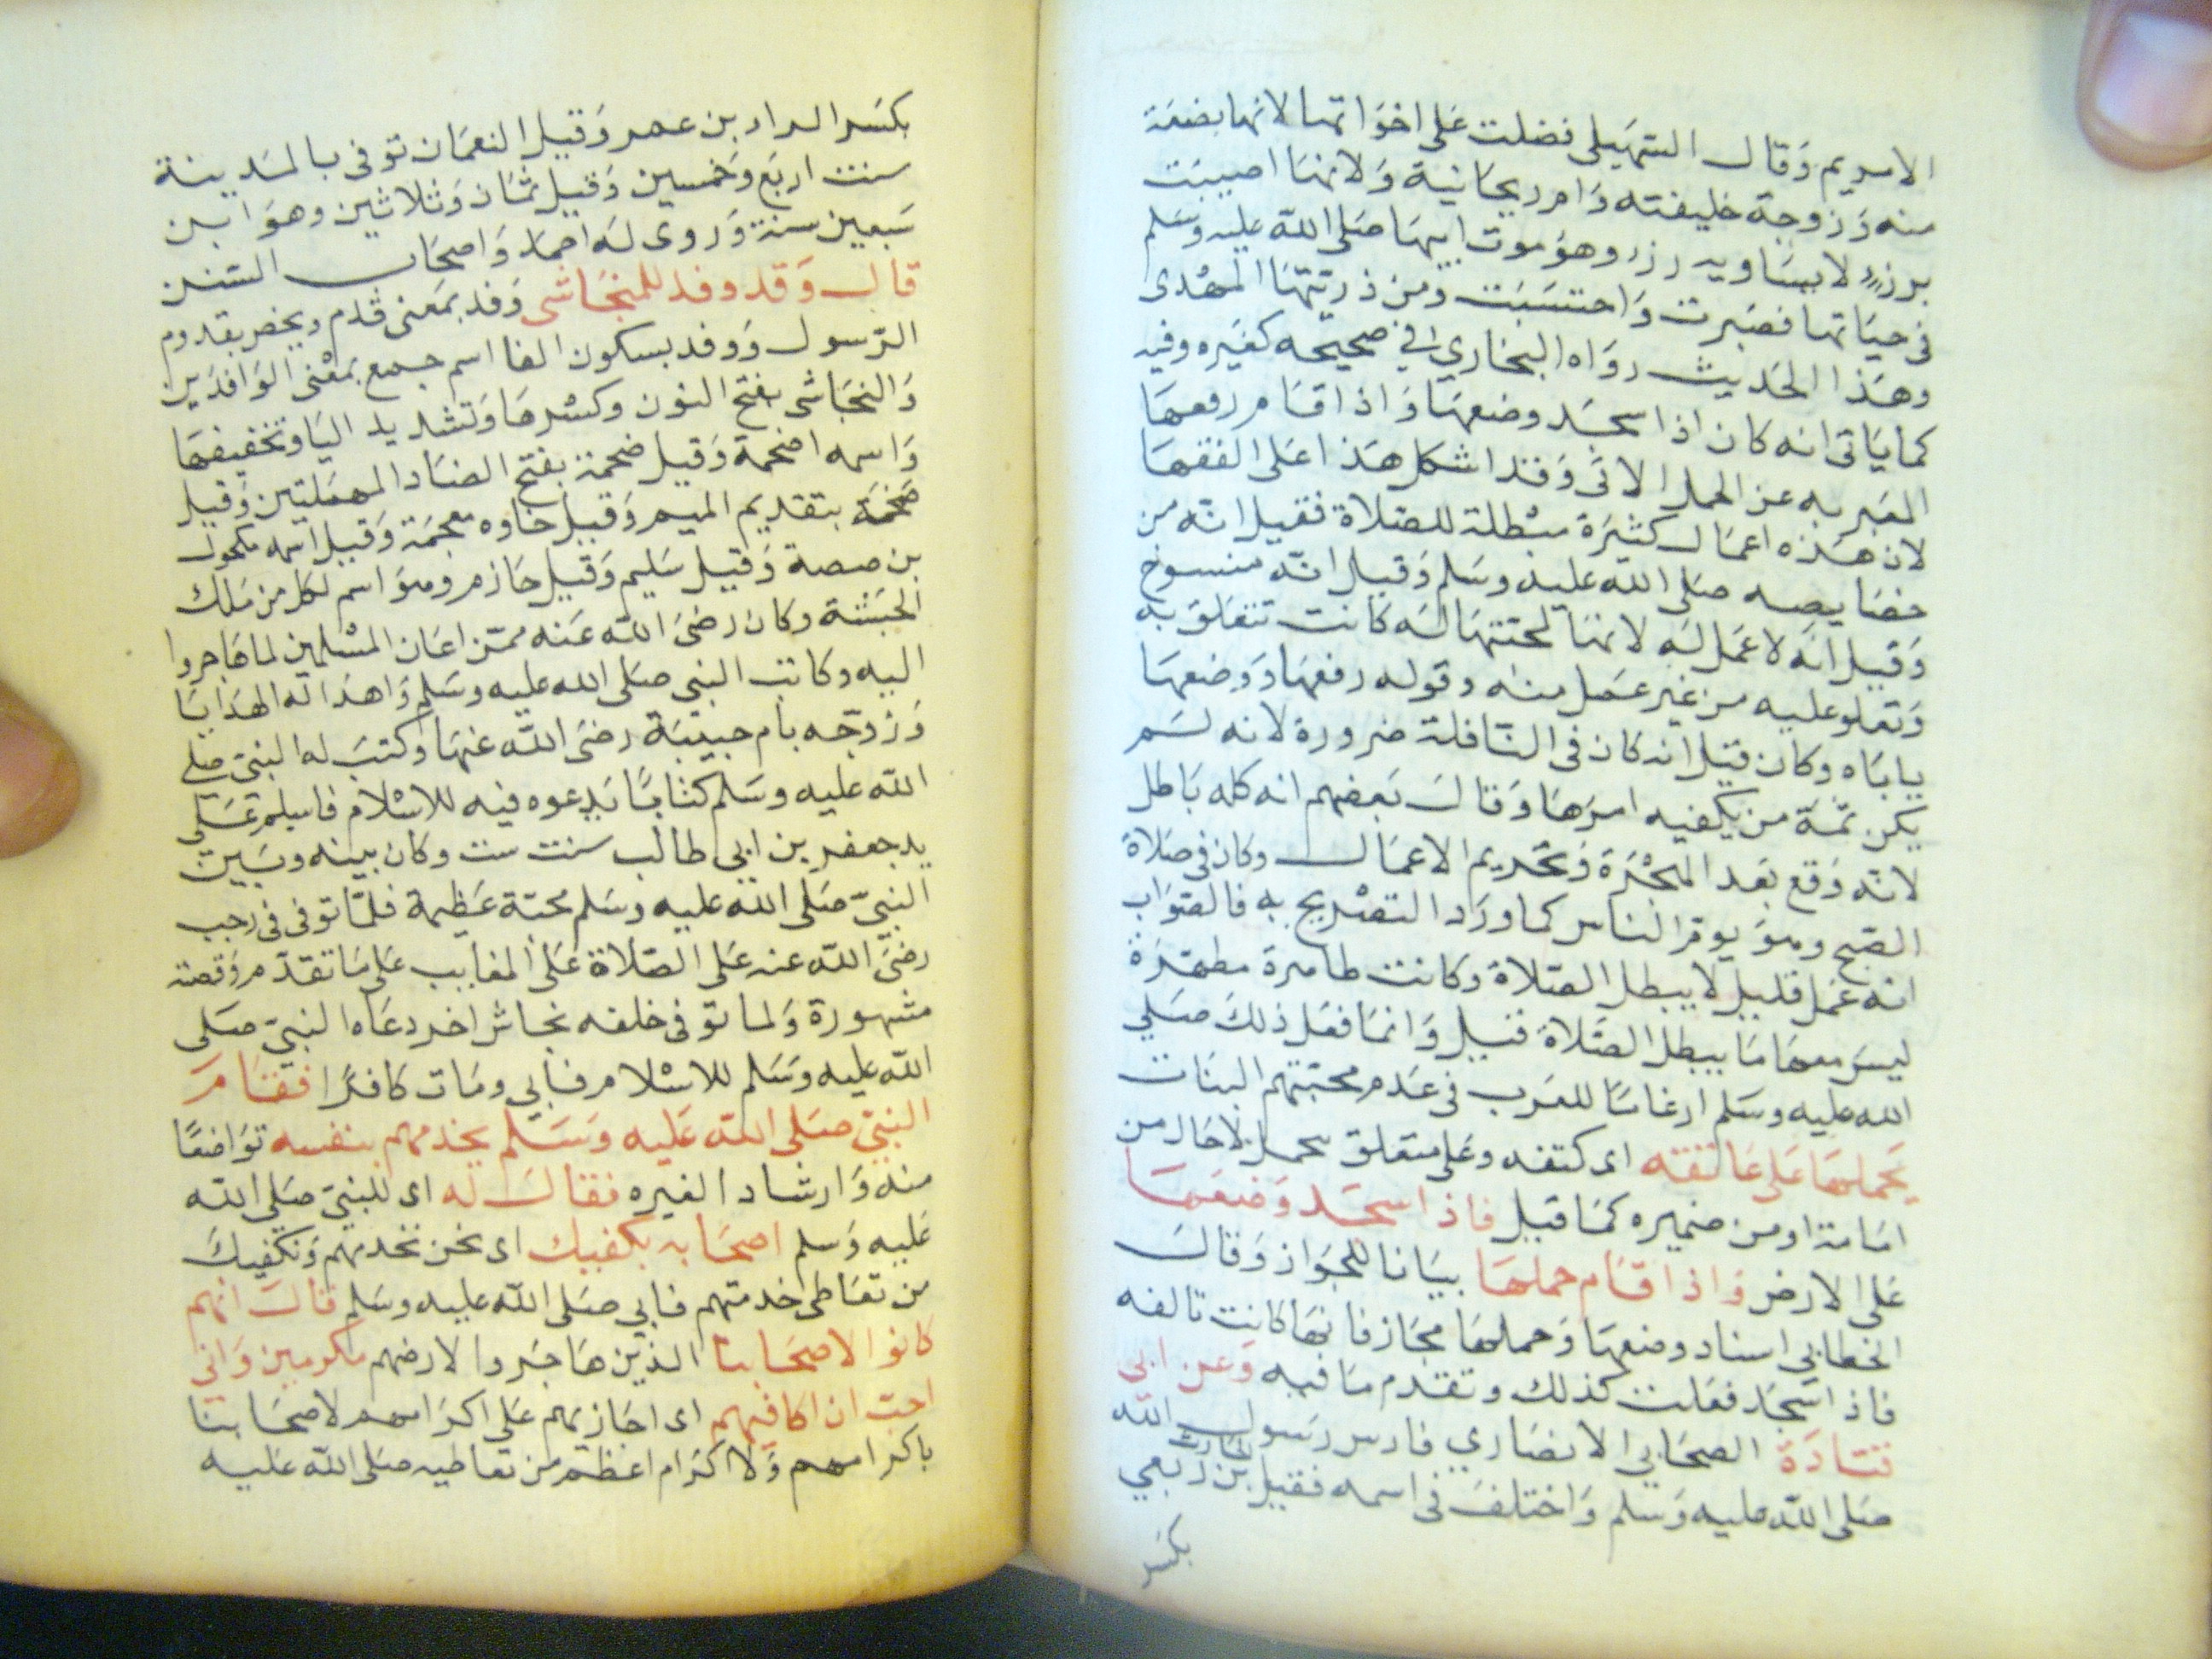 الا مريم وَقال السّهَيلى فضلت عَلى اخوَاتها لانها بضعَة
منه وَزوجة خليفته وَام ريحَانية وَلانهَا اصيبَت
برزء لا يسَاويه رزء وهوَ موت ابيهَا صَلى اللّه عليه وسَلم
فى حيَاتها فصَبرت وَاحتسَبَت ومن ذريتهَا المهْدى
وهَذا الحَديث روَاه البخاري في صحيحه كغيَره وفيه
كما يَاتى انه كان اذا سجَد وضعهَا وَاذا قام رفعهَا
المعَبر به عن الحمل الاتى وَقد اشكل هَذا عَلى الفقهَا
لان هَذه اعمَال كثيرَة مبْطلة للصَلاة فقيل انّه من
خصَايصه صَلى اللّه عليه وسَلم وَقيل انّه منسوخ
وَقيل انّه لا عَمل لَه لانهَا لمحبتهَا لَه كانت تتعَلق به
وَتعلو عليه من غير عمَل منه وقوله رفعهَا وَوضعهَا
ياباَه وكان قيل انه كان فى النّافلة ضرورة لانه لَم
يكن ثمّة من يكفيه امرَهَا وَقالَ بَعضهم انه كله بَاطل
لانّه وَقع بَعد الهجْرَة وَتحَريم الاعمَال وكان فى صَلاة
الصّبح وهوَ يوم الناس كما ورَد التصْريح به فالصّوَاب
انه عَمل قليل لا يبطل الصّلاة وكانت طاهرة مطهّرَة
ليسَ معهَا مَا يبطل الصّلاة قيل وَانمَا فعَل ذلكَ صَلي
الله عليه وسَلم ارغامًا للعَرب فى عَدم محبّتهم البنَات
يَحملهَا عَلى عَاتقه اى كتفه وعَلى متعَلق بحمل لا حَال من
امَامة او من ضميره كمَا قيل فاذا سجَد وَضعَهَا
عَلى الارض وَاذا قام حملهَا بيَانا للجوَاز وَقالَ
الخطابي اسناد وضعهَا وَحملهَا مجَاز فانهَا كانت تالفه
فاذا سَجَد فعَلت كذلك وتقدم مَا فيه وَعن ابى
قتادَة الصحَابي الانصَاري فارس رسَول اللّه
صَلى اللّه عليه وَسلم وَاختلفَ فى اسمه فقيل الحَارث بن رَبعي
بكسَر
بكسَر الراء بن عمر وَقيل النعمَان توفى بالمَدينة
سنت اربَع وَخمسين وَقيل ثمَان وَثلاثين وهوَ ابن
سَبعين سنة وَروى لَه احمَد وَاصحَاب السّنن
قال وَقد وفد للنجَاشى وَفد بمَعنى قدم ويخص بقدوم
الرّسول وَوفد بسكون الفا اسم جمع بمعْنى الوَافدَين
وَالنجَاشى بفتح النون وكسْرهَا وَتشديد اليَا وتخفيفهَا
وَاسمه اصحمة وَقيل صحمة بفتح الصَاد المهمَلتين وَقيل
صَحمَة بتقديم الميم وَقيل خاوه معجمَة وَقيل اسمه مكحول
بن صصة وَقيل سَليم وَقيل حَازم وهوَ اسم لكل من مَلك
الحبَشة وكان رضىَ اللّه عَنه ممّن اعَان المسْلمين لما هَاجروا
اليه وكاتب النبى صَلى الله عليه وسَلم وَاهدَا له الهدَايَا
وَزوّجه بام حبيبَة رضىَ اللّه عنهَا وكتبَ له النبىّ صَلي
اللّه عليه وسَلم كتابًا يَدعوه فيه للاسْلام فاسلم عَلى
يد جعفر بن ابى طالب سنت ست وكان بينه وبَين
النبىّ صَلى اللّه عليه وسَلم محبّة عَظيمة فلمّا توفى فى رجب
رضىَ اللّه عنه عَلى الصّلاة عَلى الغايب عَلى مَا تقدّم وَقصته
مشهورة وَلما توفى خلفه نجاش اخر دعَاه النبىّ صَلى
اللّه عليه وَسَلم للاسْلام فابي ومَات كافرًا فقامَ
النبىّ صَلى اللّه عَليه وَسَلم يخدمهم بنفسه توَاضعًا
منه وَارشادا لغيره فقالَ له اى للنبىّ صَلى اللّه
عَليه وَسلم اصحَابه نكفيك اى نحن نخدمهم وَنكفيكَ
من تعَاطى خدمتهم فابي صَلى اللّه عليه وسَلم قالَ انهم
كانوا لاصحَابنَا الذين هَاجَروا لارضهم مكرمين وَاني
احبّ ان اكافيهم اى اجَازيهم عَلي اكرَامهم لاصحَابنا
باكرامهم وَلا اكرَام اعظم من تعاطيه صَلى اللّه عَليه